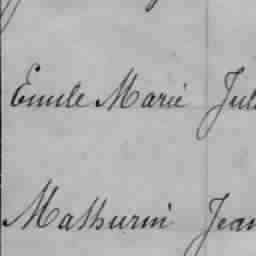 Emile Marie Jul
Mathurin Jean